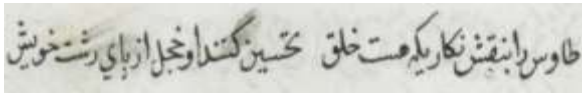 طاوس را بنقش نکاریکه هست خلق تحسین کنند او خجل از پای زشت خویش